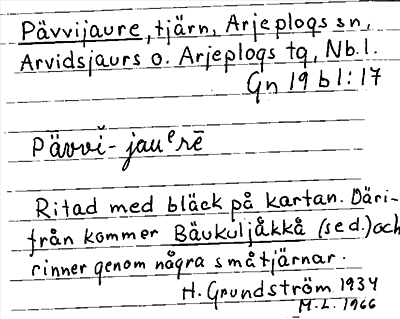 Pävvijaure, tjärn, Arjeplogs sn,
Arvidsjaurs o. Arjeplogs tg, Nb.l.
Gn 19 b 1:17
Pävvĭ̮-jauᵉrē
Ritad med bläck på kartan. Däri-
från kommer Bäukuljåkkå (se d.) och
rinner genom några småtjärnar.
H. Grundström 1934
M.L. 1966